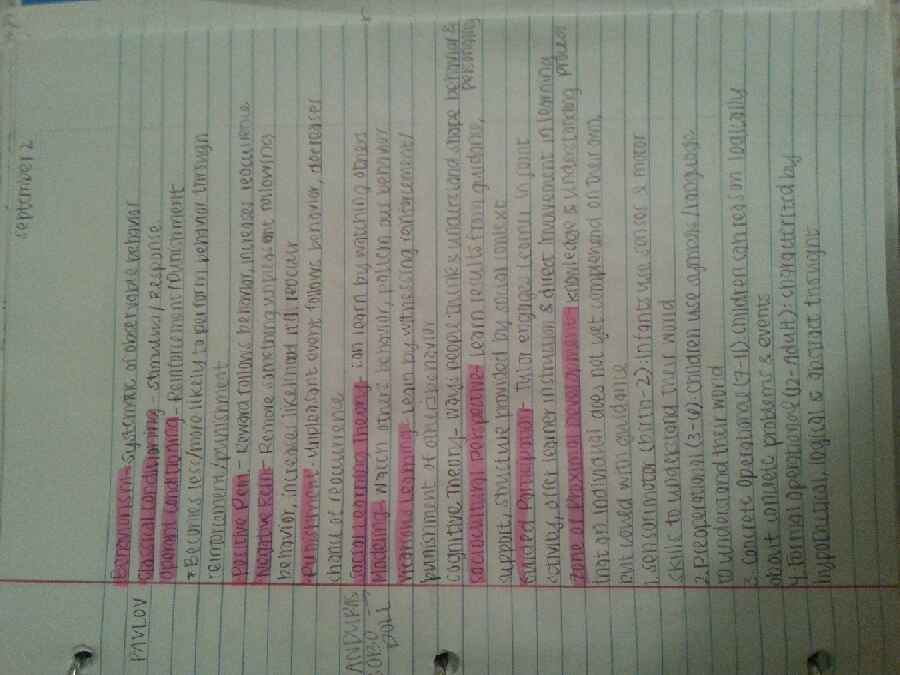 september 2
Behaviorism - systematic of observable behavior
PAVLOV classical conditioning - stimulus/response
operant conditioning - Reinforcement/Punishment
* Becomes less/more likely to perform behavior through
reinforcement/punishment
Positive Rein - Reward follows behavior, increases recurrence
Negative Rein - Remove something unpleasant following
behavior, increase likelihood it'll reoccur
Punishment - unpleasant event follows behavior, decreases
chance of recurrence
BANDURAS social learning theory - can learn by watching others
BOBO DOLL modeling - watch others behavior, pattern our behavior
learning - learn by witnessing reinforcement/
punishment of others behavior
cognitive Theory - ways people thinks understand shape behavior & personality
sociocultural perspective - learn results from guidance,
support, structure provided by social context
Guided Participation - Tutor engages learner in joint
activity, offer learner instruction & direct involvement in learning process
zone of Proximal development - knowledge & understanding
that an individual does not yet comprehend on their own,
but could with guidance
1. sensorimotor (birth-2): infants use senses & motor
skills to understand their world
2. Preoperational (3-6) children use symbols/language
to understand their world
3. concrete operational (7-11) children can reason logically
about concrete problems & events
4. formal operational (12-Adult): characterized by
hypothetical, logical & abstract thought